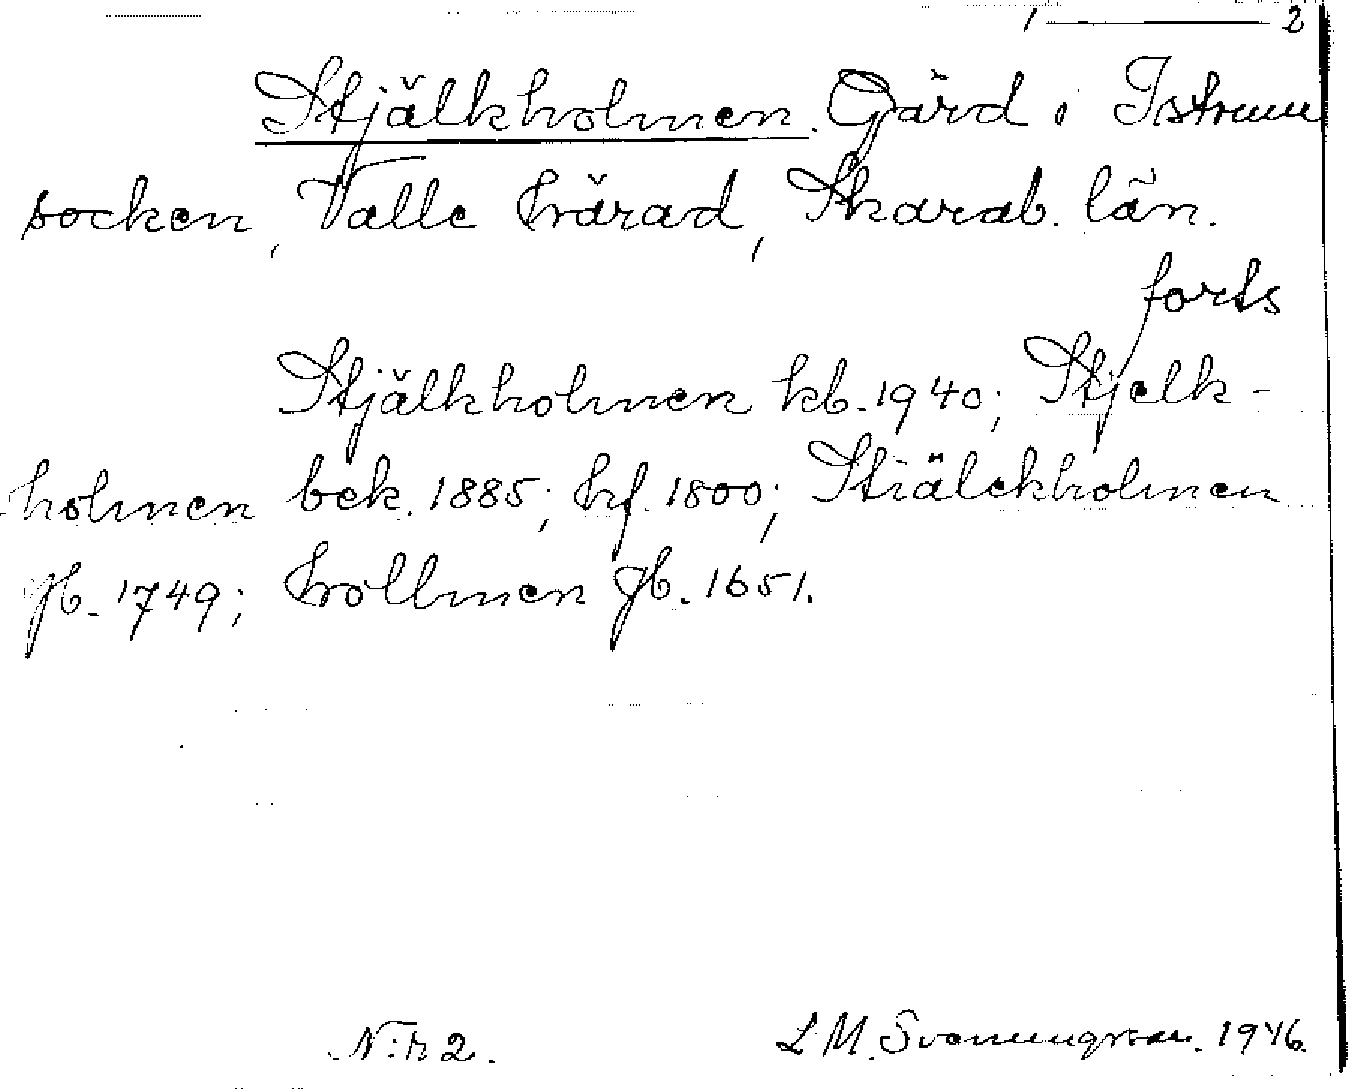 1 — 2
Stjälkholmen. Gård i Istrum
socken, Valle härad, Skarab. län.
forts
Stjälkholmen kb. 1940; Stjelk-
holmen bek. 1885; hf. 1800; Stiälckholmen
jb. 1749; hollmen jb. 1651.
N:r 2. L M. Svanungsson. 1946.